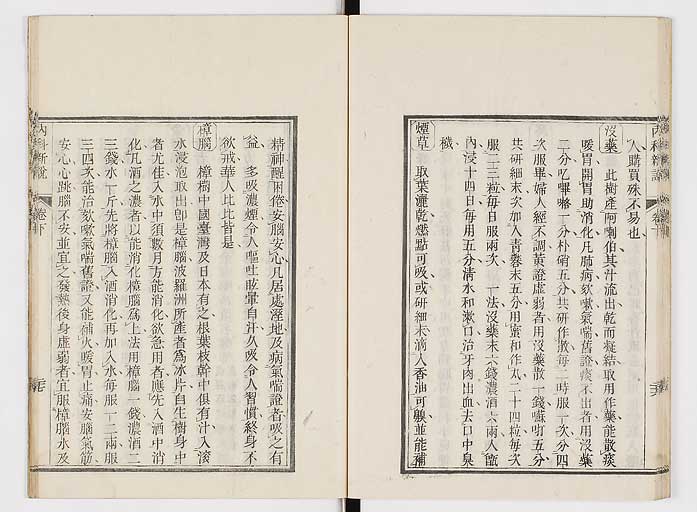 人購買殊不易也
沒藥 此樹產阿喇伯其汁流出乾而凝結取用作藥能散痰
暖胃開胃助消化凡肺病欬嗽氣喘舊證痰不出者用沒藥
二分吃嗶格一分朴硝五分共研作散每二時服一次分四
次服畢婦人經不調黃證虛弱者用沒藥散一錢 五分
共研細末次加入青礬末五分用蜜和作丸二十四粒每次
服二三粒每日服兩次 一法沒藥末六錢濃酒六兩入瓶
內浸十四日每用五分清水和漱口治牙肉出血去口中臭
穢
煙草 取葉灑乾燃點可吸或研細末滴入香油可齅並能補
內科新說 卷下
精神醒困倦安腦安心凡居處溼地及病氣喘證者吸之有
益 多吸濃煙令人嘔吐眩暈自汗久吸令人習慣終身不
欲戒華人比比皆是
樟腦 樟樹中國臺灣及日本有之根葉枝幹中俱有汁入滾
水浸泡取出卽是樟腦波羅洲所產者爲冰片自生樹身中
者尤佳入水中須數月方能消化欲急用者應先入酒中消
化凡酒之濃者以能消化樟腦爲上法用樟腦一錢濃酒二
三錢水一斤先將樟腦入酒消化再加入水每服一二兩服
三四次能治欬嗽氣喘舊證又能補火暖胃止痛安腦氣筋
安心心跳腦不安並宜之發熱後身虛弱者宜服樟腦水及
內科新說 卷下